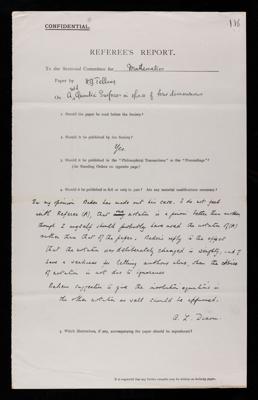 CONFIDENTIAL.
136
REFEREE'S REPORT.
To the Sectional Committee for Mathematics
Paper by
On A Quartic Surface in space of four dimensions
1. Should the paper be read before the Society?
2. Should it be published by the Society?
Yes.
3. Should it be published in the "Philosophical Transactions" or the "Proceedings"?
(See Standing Orders on opposite page)
4. Should it be published in full or only in part? Are any material modifications necessary?
In my opinion Baker has made out his case. I do not feel
with Referee (A), that any notation is a priori better than another
though I myself should probably have used the notation of (A)
rather than that of the paper. Baker's reply is to the effect
that the notation was deliberately changed and I
have a weakness for letting authors alone, when the choice
of notation is not due to ignorance
Baker's suggestion to give the involution equations in
the other notation as well should be approved.
A. L. Dixon.
5. Which illustrations, if any, accompanying the paper should be reproduced?
It is requested that any further remarks may be written on the following pages.